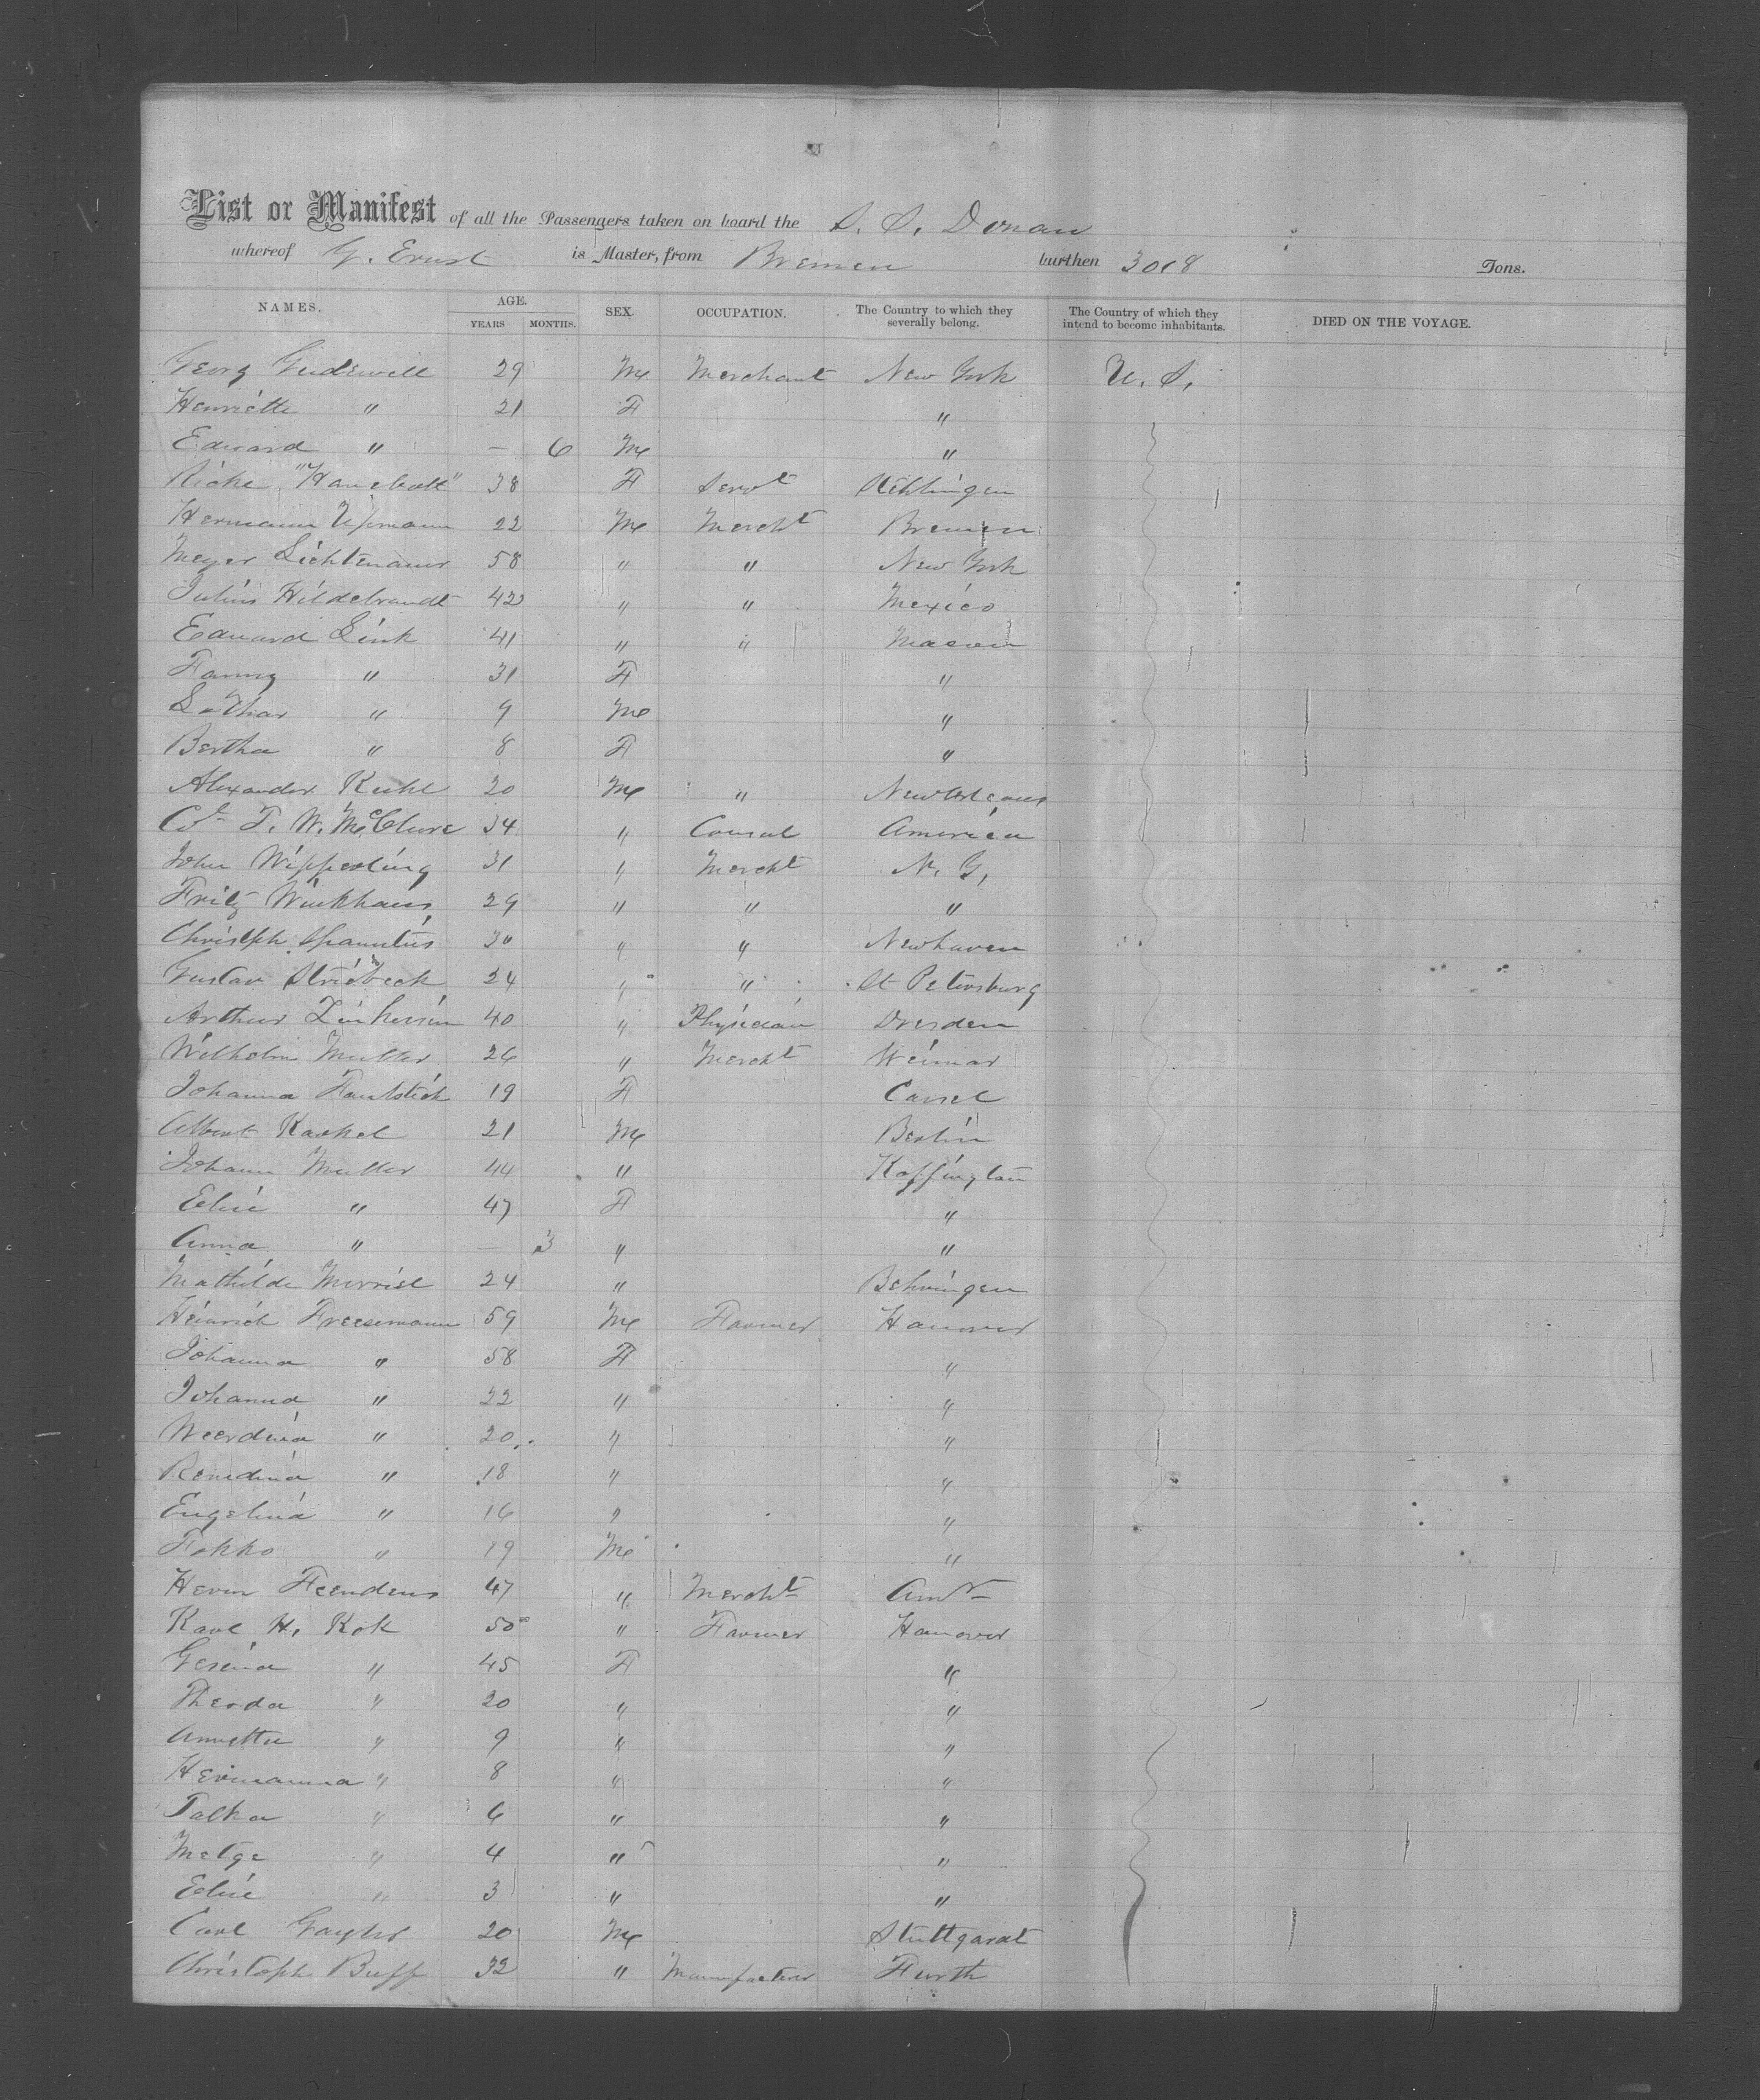 List or Manifest of all the Passengers taken on board the S. S. Donau
whereof G. Ernst is Master, from Bremen burthen 3018 Tons.
NAMES. AGE. YEARS MONTHS. SEX. OCCUPATION. The Country to which they severally belong. The Country of which they intend to become inhabitants. DIED ON THE VOYAGE.
Georg Gudewill 29 M Merchant New York U. S.
Henriette " 21 F "
Edward " — 6 M "
38 F Servt
Hermann Upmann 22 M Mercht Bremen
Meyer Lichtenauer 58 " " New York
Julius Hildebrandt 42 " " Mexico
Eduard Link 41 " " Macon
Fanny " 31 F "
Lothar " 9 M "
Bertha " 8 F "
Alexander Kuhl 20 M " New Orleans
T. W. McClure 34 " Consul America
John Wipperling 31 " Mercht N. Y,
Fritz Winkhaus 29 " " "
Christph Spanntius 30 " " Newhaven
Gustav Striebeck 24 " " St Petersburg
Arthur 40 " Physician Dresden
Wilhelm Muller 26 " Mercht Weimar
Johanna Faulstich 19 F Cassel
Albert Kaskel 21 M Berlin
Johann Muller 44 " Koffington
Elise " 47 F "
Anna " — 3 " "
Mathilde 24 " Behringen
Heinrich Freesemann 59 M Farmer Hanover
Johanna " 58 F "
Johanna " 22 " "
Weerdina " 20 " "
Renedina " 18 " "
Engelina " 16 " "
Fokko " 19 M "
Herm 47 " Mercht Amr
Karl H. Kok 50 " Farmer Hanover
Gesina " 45 F "
Theoda " 20 " "
Annette " 9 " "
Hermanna " 8 " "
Talka " 6 " "
Metge " 4 " "
Elise " 3 " "
Carl 20 M Stuttgardt
Christoph Buff 32 " Manufacturer Furth